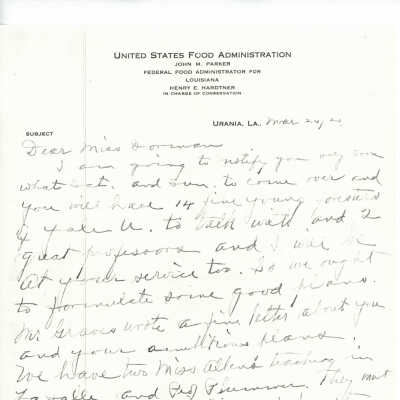 UNITED STATES FOOD ADMINISTRATION
JOHN M. PARKER
FEDERAL FOOD ADMINISTRATOR FOR
LOUISIANA
HENRY E. HARDTNER
IN CHARGE OF CONSERVATION
URANIA, LA., Mar 24,
SUBJECT
Dear Miss Dorman
I am going to notify you very soon
what Sat. and Sun. to come over and
you will have 14 fine young foresters
of Yale U. to talk with and 2
great professors and I will be
at your service too. So we ought
to formulate some good plans.
Mr Graves wrote a fine letter about you
and your ambitious plans.
We have two Miss Allens teaching in
and They must